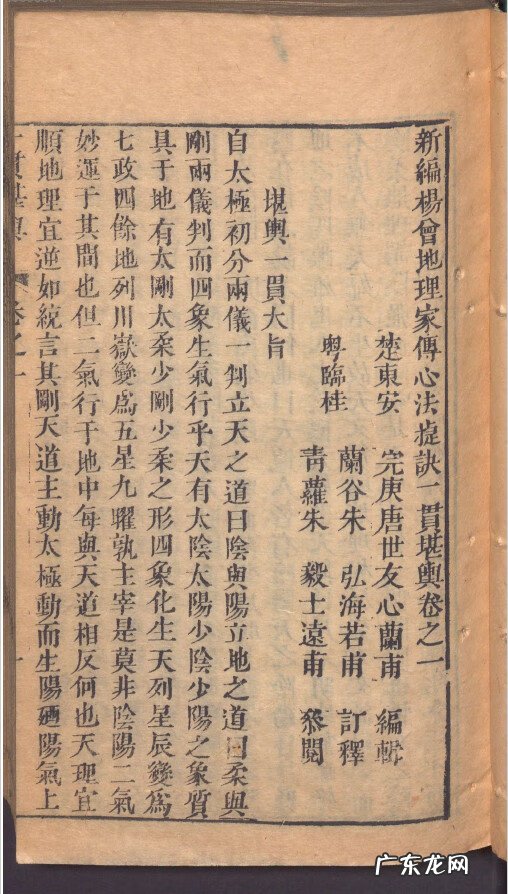 新編楊曾地理家傳心法捷訣一貫堪輿卷之一
楚東安　完庚唐世友心蘭甫　編輯
蘭谷朱　弘海若甫　訂釋
粤臨桂
青蘿朱　毅士遠甫　叅閱
堪輿一貫大旨
自太極初分兩儀一判立天之道曰陰與陽立地之道曰柔與
剛兩儀判而四象生氣行乎天有太陰太陽少陰少陽之象質
具于地有太剛太柔少剛少柔之形四象化生天列星辰變爲
七政四餘地列川嶽變爲五星九曜孰主宰是莫非陰陽二氣
妙運于其間也但二氣行于地中每與天道相反何也天理宜
順地理宜逆如統言其剛天道主動太極動而生陽廼陽氣上
一貫堪輿　卷之一　一
广东龙网